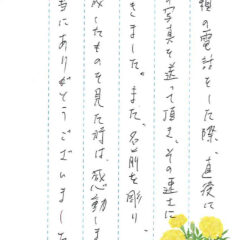 頼の電話をした際、直後に
の写真を送って頂き、その速さに
きました。また、名前を彫り、
成したものを見た時は、感動しま
当にありがとうございました